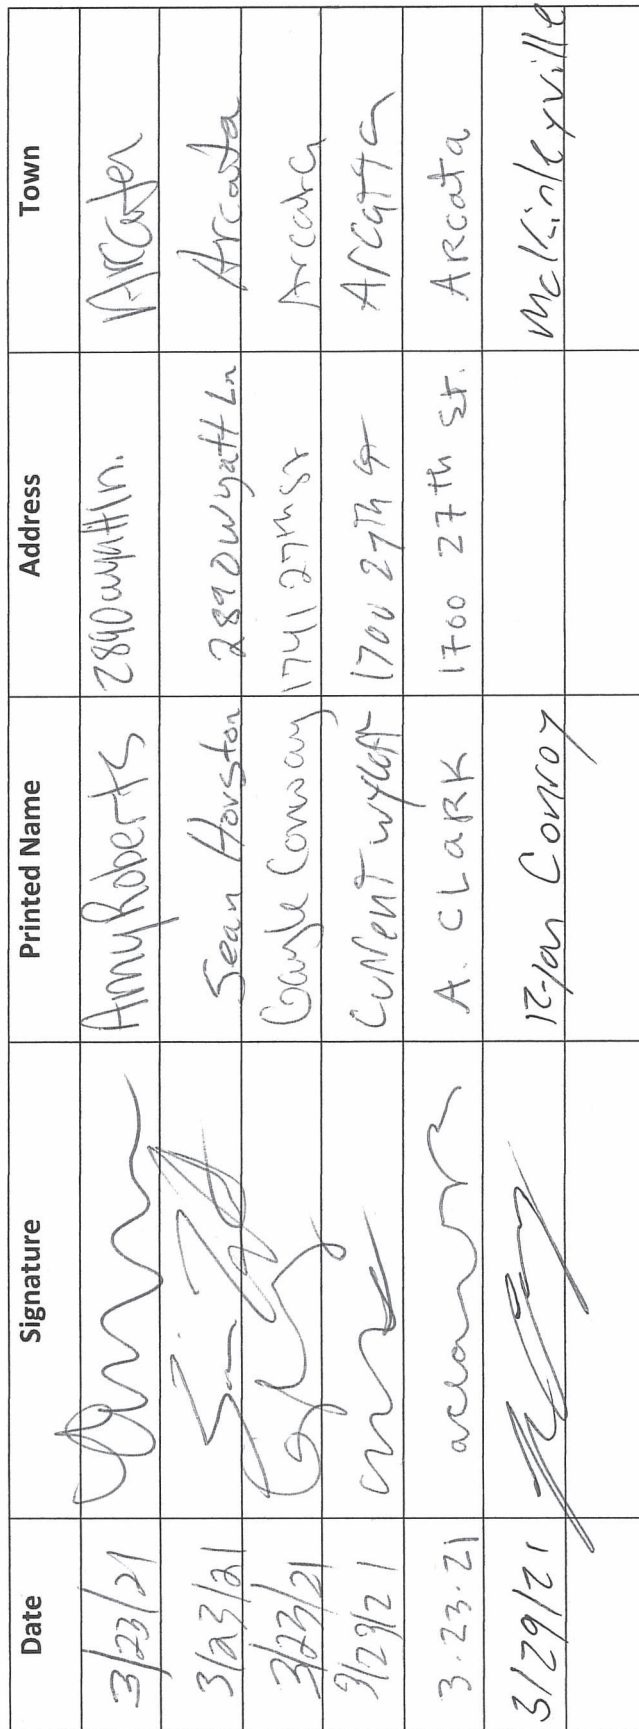 Date Signature Printed Name Address Town
3/23/21 Amy Roberts 2890 wyatt ln. Arcata
3/23/21 Sean Houston 2890 Wyatt Ln Arcata
3/23/21 Gayle Conway 1741 27th St Arcata
3/23/21 1700 27th St Arcatta
3.23.21 A. CLARK 1700 27th St. ARcata
3/29/21 Ryan Conroy McKinleyville